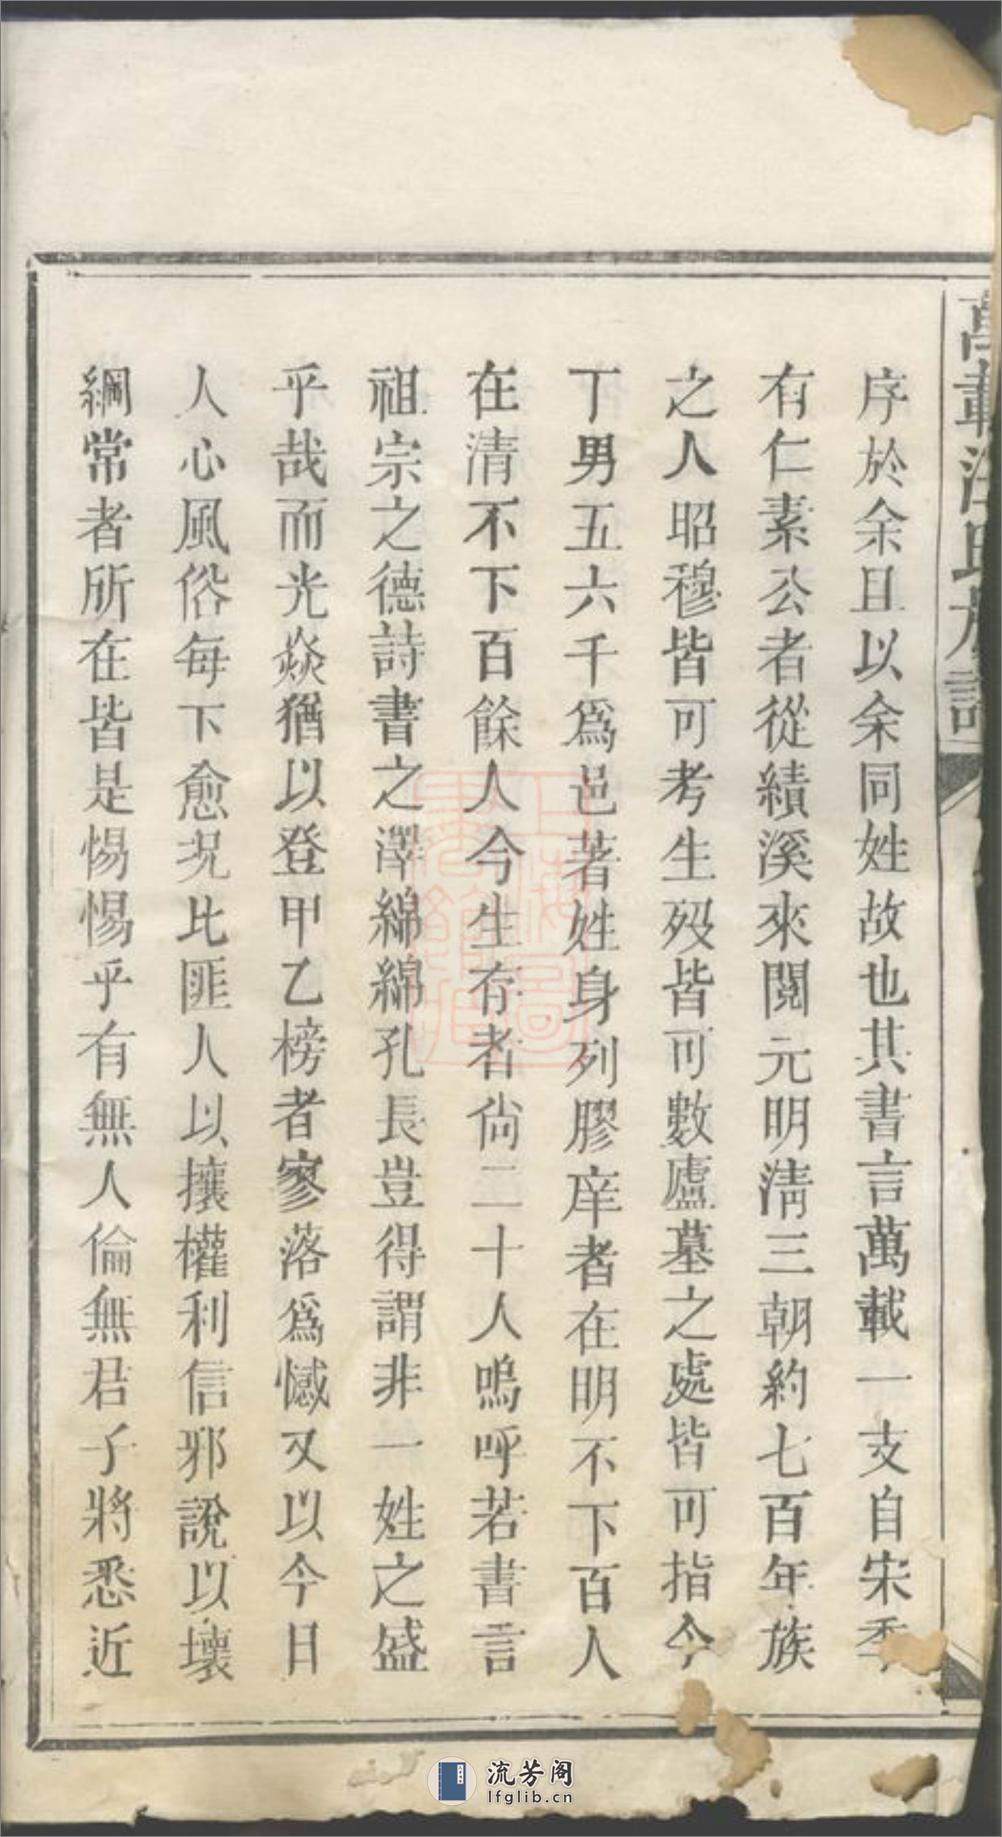 序於余且以余同姓故也其書言萬載一支自宋季
有仁素公者從績溪來閱元明淸三朝約七百年族
之人昭穆皆可考生歿皆可數廬墓之處皆可指今
丁男五六千爲邑著姓身列膠庠者在明不下百人
在清不下百餘人今生存者尙二十人嗚呼若書言
祖宗之德詩書之澤綿綿孔長豈得謂非一姓之盛
乎哉而光燄猶以登甲乙榜者寥落爲憾又以今日
人心風俗每下愈况比匪人以攘權利信邪說以壞
綱常者所在皆是惕惕乎有無人倫無君子將悉近
流芳阁
lfglib.cn